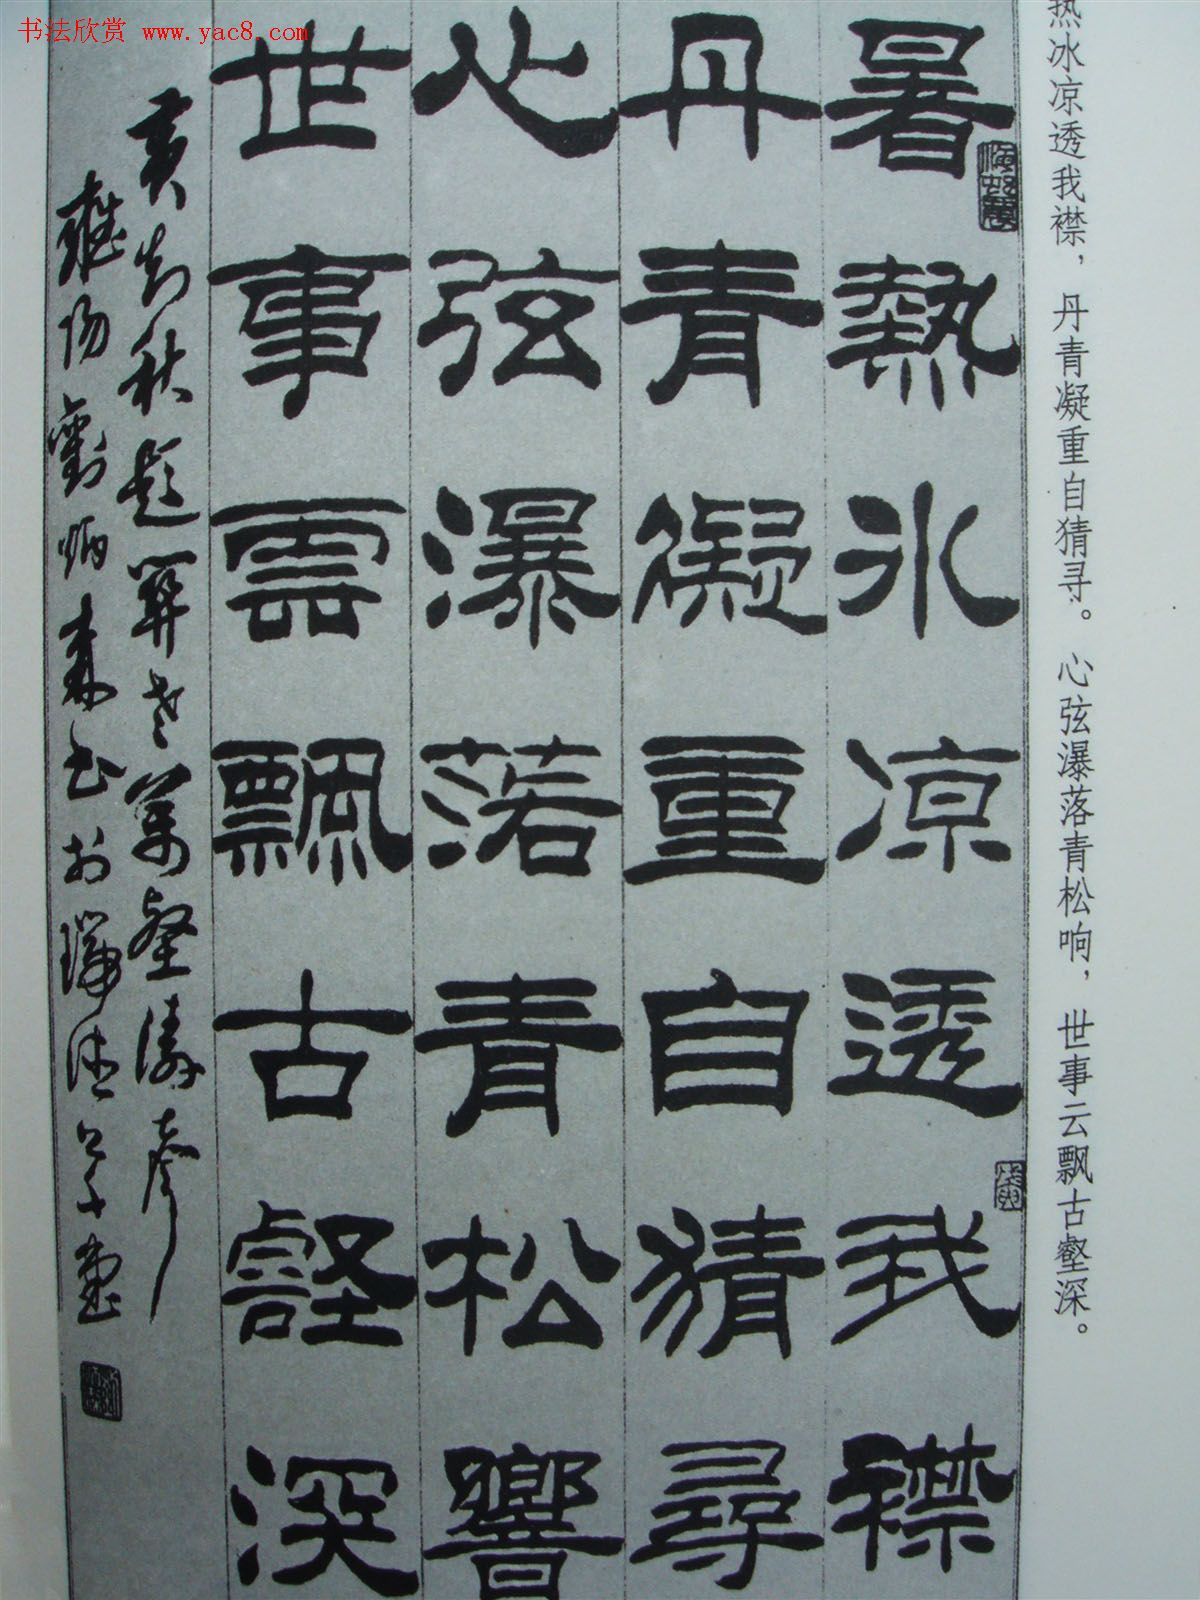 书法欣赏 www.yac8.com
热冰凉透我襟，丹青凝重自猜寻。心弦瀑落青松响，世事云飘古壑深。
暑熱冰凉透我襟
丹青凝重自猜尋
心弦瀑落青松響
世事雲飄古壑深
黄 秋题 万壑涛
刘炳森书于